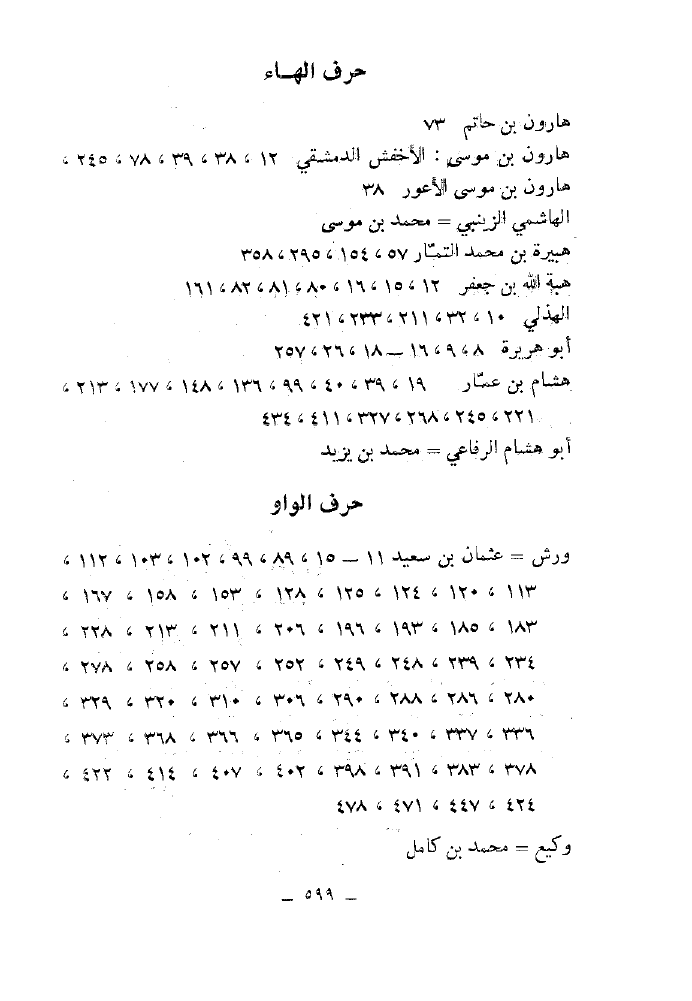 حرف الهــاء
هارون بن حاتم ٧٣
هارون بن موسى : الأخفش الدمشقي ١٢ ، ٣٨ ، ٣٩ ، ٧٨ ، ٢٤٥ ،
هارون بن موسى الأعور ٣٨
الهاشمي الزينبي = محمد بن موسى
هبيرة بن محمد التمّار ٥٧ ، ١٥٤ ، ٢٩٥ ، ٣٥٨
هبة الله بن جعفر ١٢ ، ١٥ ، ١٦ ، ٨٠ ، ٨١ ، ٨٢ ، ١٦١
الهذلي ١٠ ، ٣٢ ، ٢١١ ، ٢٣٣ ، ٤٢١
أبو هريرة ٨ ، ٩ ، ١٦ – ١٨ ، ٢٦ ، ٢٥٧
هشام بن عمّار ١٩ ، ٣٩ ، ٤٠ ، ٩٩ ، ١٣٦ ، ١٤٨ ، ١٧٧ ، ٢١٣ ،
٢٢١ ، ٢٤٥ ، ٢٦٨ ، ٣٢٧ ، ٤١١ ، ٤٣٤
أبو هشام الرفاعي = محمد بن يزيد
حرف الواو
ورش = عثمان بن سعيد ١١ – ١٥ ، ٨٩ ، ٩٩ ، ١٠٢ ، ١٠٣ ، ١١٢ ،
١١٣ ، ١٢٠ ، ١٢٤ ، ١٢٥ ، ١٢٨ ، ١٥٣ ، ١٥٨ ، ١٦٧ ،
١٨٣ ، ١٨٥ ، ١٩٣ ، ١٩٦ ، ٢٠٦ ، ٢١١ ، ٢١٣ ، ٢٢٨ ،
٢٣٤ ، ٢٣٩ ، ٢٤٨ ، ٢٤٩ ، ٢٥٢ ، ٢٥٧ ، ٢٥٨ ، ٢٧٨ ،
٢٨٠ ، ٢٨٦ ، ٢٨٨ ، ٢٩٠ ، ٣٠٦ ، ٣١٠ ، ٣٢٠ ، ٣٢٩ ،
٣٣٦ ، ٣٣٧ ، ٣٤٠ ، ٣٤٤ ، ٣٦٥ ، ٣٦٦ ، ٣٦٨ ، ٣٧٣ ،
٣٧٨ ، ٣٨٣ ، ٣٩١ ، ٣٩٨ ، ٤٠٢ ، ٤٠٧ ، ٤١٤ ، ٤٢٢ ،
٤٢٤ ، ٤٤٧ ، ٤٧١ ، ٤٧٨
وكيع = محمد بن كامل
– ٥٩٩ –